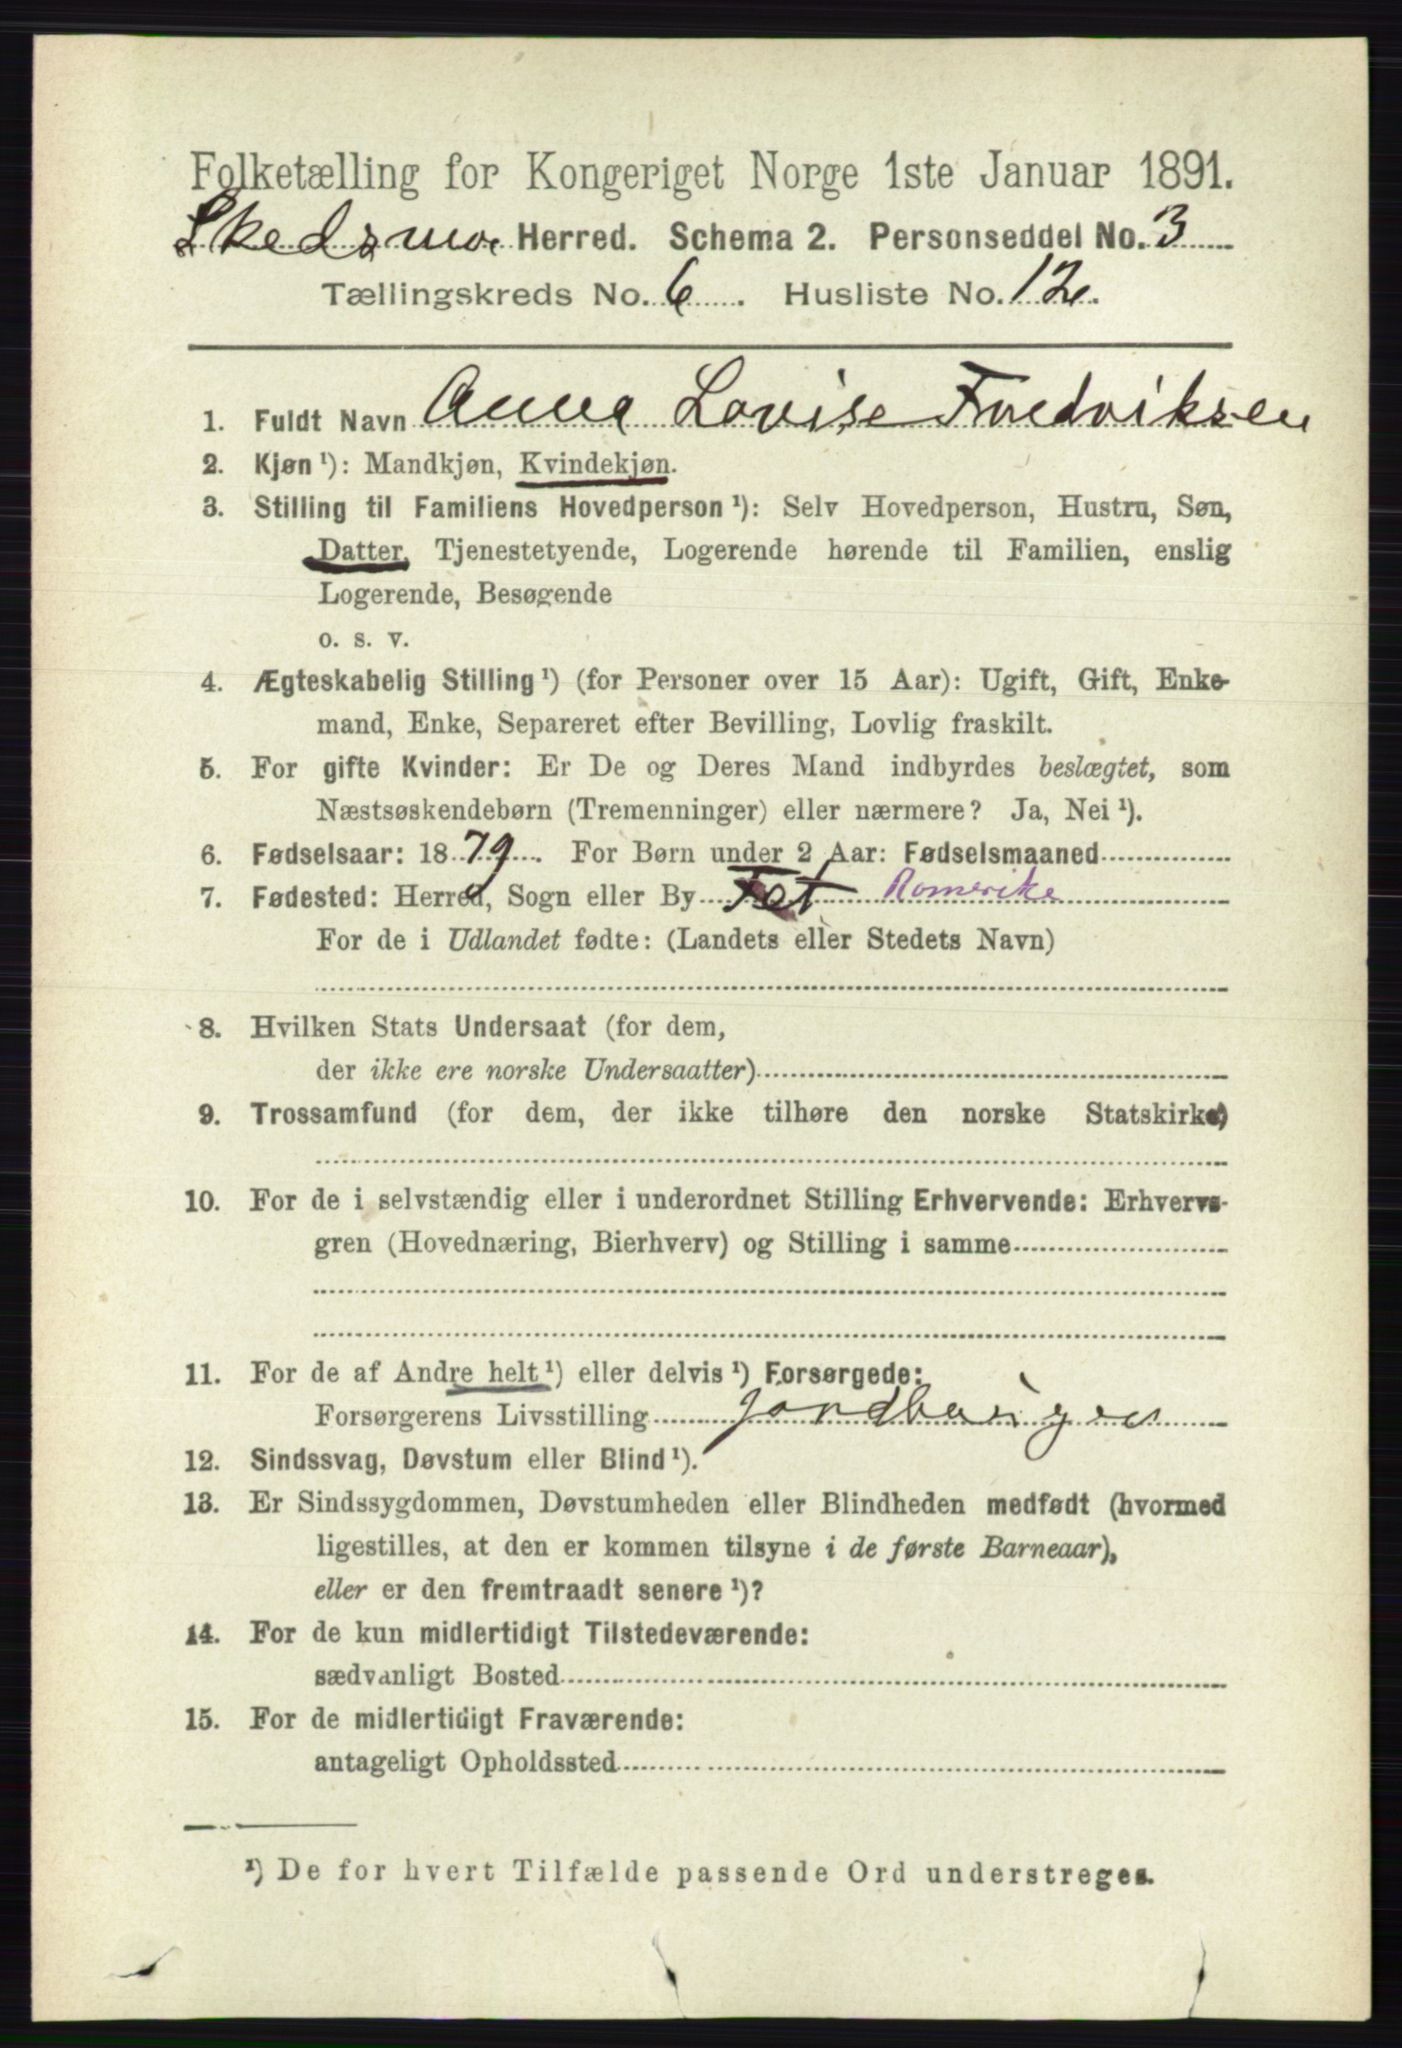 Folketælling for Kongeriget Norge 1ste Januar 1891.
Skedsmo Herred. Schema 2. Personseddel No. 3
Tællingskreds No. 6. Husliste No. 12.
1. Fuldt Navn Anna Lovise Fredriksen
2. Kjøn ¹): Mandkjøn, Kvindekjøn.
3. Stilling til Familiens Hovedperson ¹): Selv Hovedperson, Hustru, Søn,
Datter, Tjenestetyende, Logerende hørende til Familien, enslig
Logerende, Besøgende
o. s. v.
4. Ægteskabelig Stilling ¹) (for Personer over 15 Aar): Ugift, Gift, Enke-
mand, Enke, Separeret efter Bevilling, Lovlig fraskilt.
5. For gifte Kvinder: Er De og Deres Mand indbyrdes beslægtet, som
Næstsøskendebørn (Tremenninger) eller nærmere? Ja, Nei ¹).
6. Fødselsaar: 1879. For Børn under 2 Aar: Fødselsmaaned
7. Fødested: Herred, Sogn eller By Fet Romerike
For de i Udlandet fødte: (Landets eller Stedets Navn)
8. Hvilken Stats Undersaat (for dem,
der ikke ere norske Undersaatter)
9. Trossamfund (for dem, der ikke tilhøre den norske Statskirke)
10. For de i selvstændig eller i underordnet Stilling Erhvervende: Erhvervs-
gren (Hovednæring, Bierhverv) og Stilling i samme
11. For de af Andre helt ¹) eller delvis ¹) Forsørgede:
Forsørgerens Livsstilling
12. Sindssvag, Døvstum eller Blind ¹).
13. Er Sindssygdommen, Døvstumheden eller Blindheden medfødt (hvormed
ligestilles, at den er kommen tilsyne i de første Barneaar),
eller er den fremtraadt senere ¹)?
14. For de kun midlertidigt Tilstedeværende:
sædvanligt Bosted
15. For de midlertidigt Fraværende:
antageligt Opholdssted
¹) De for hvert Tilfælde passende Ord understreges.